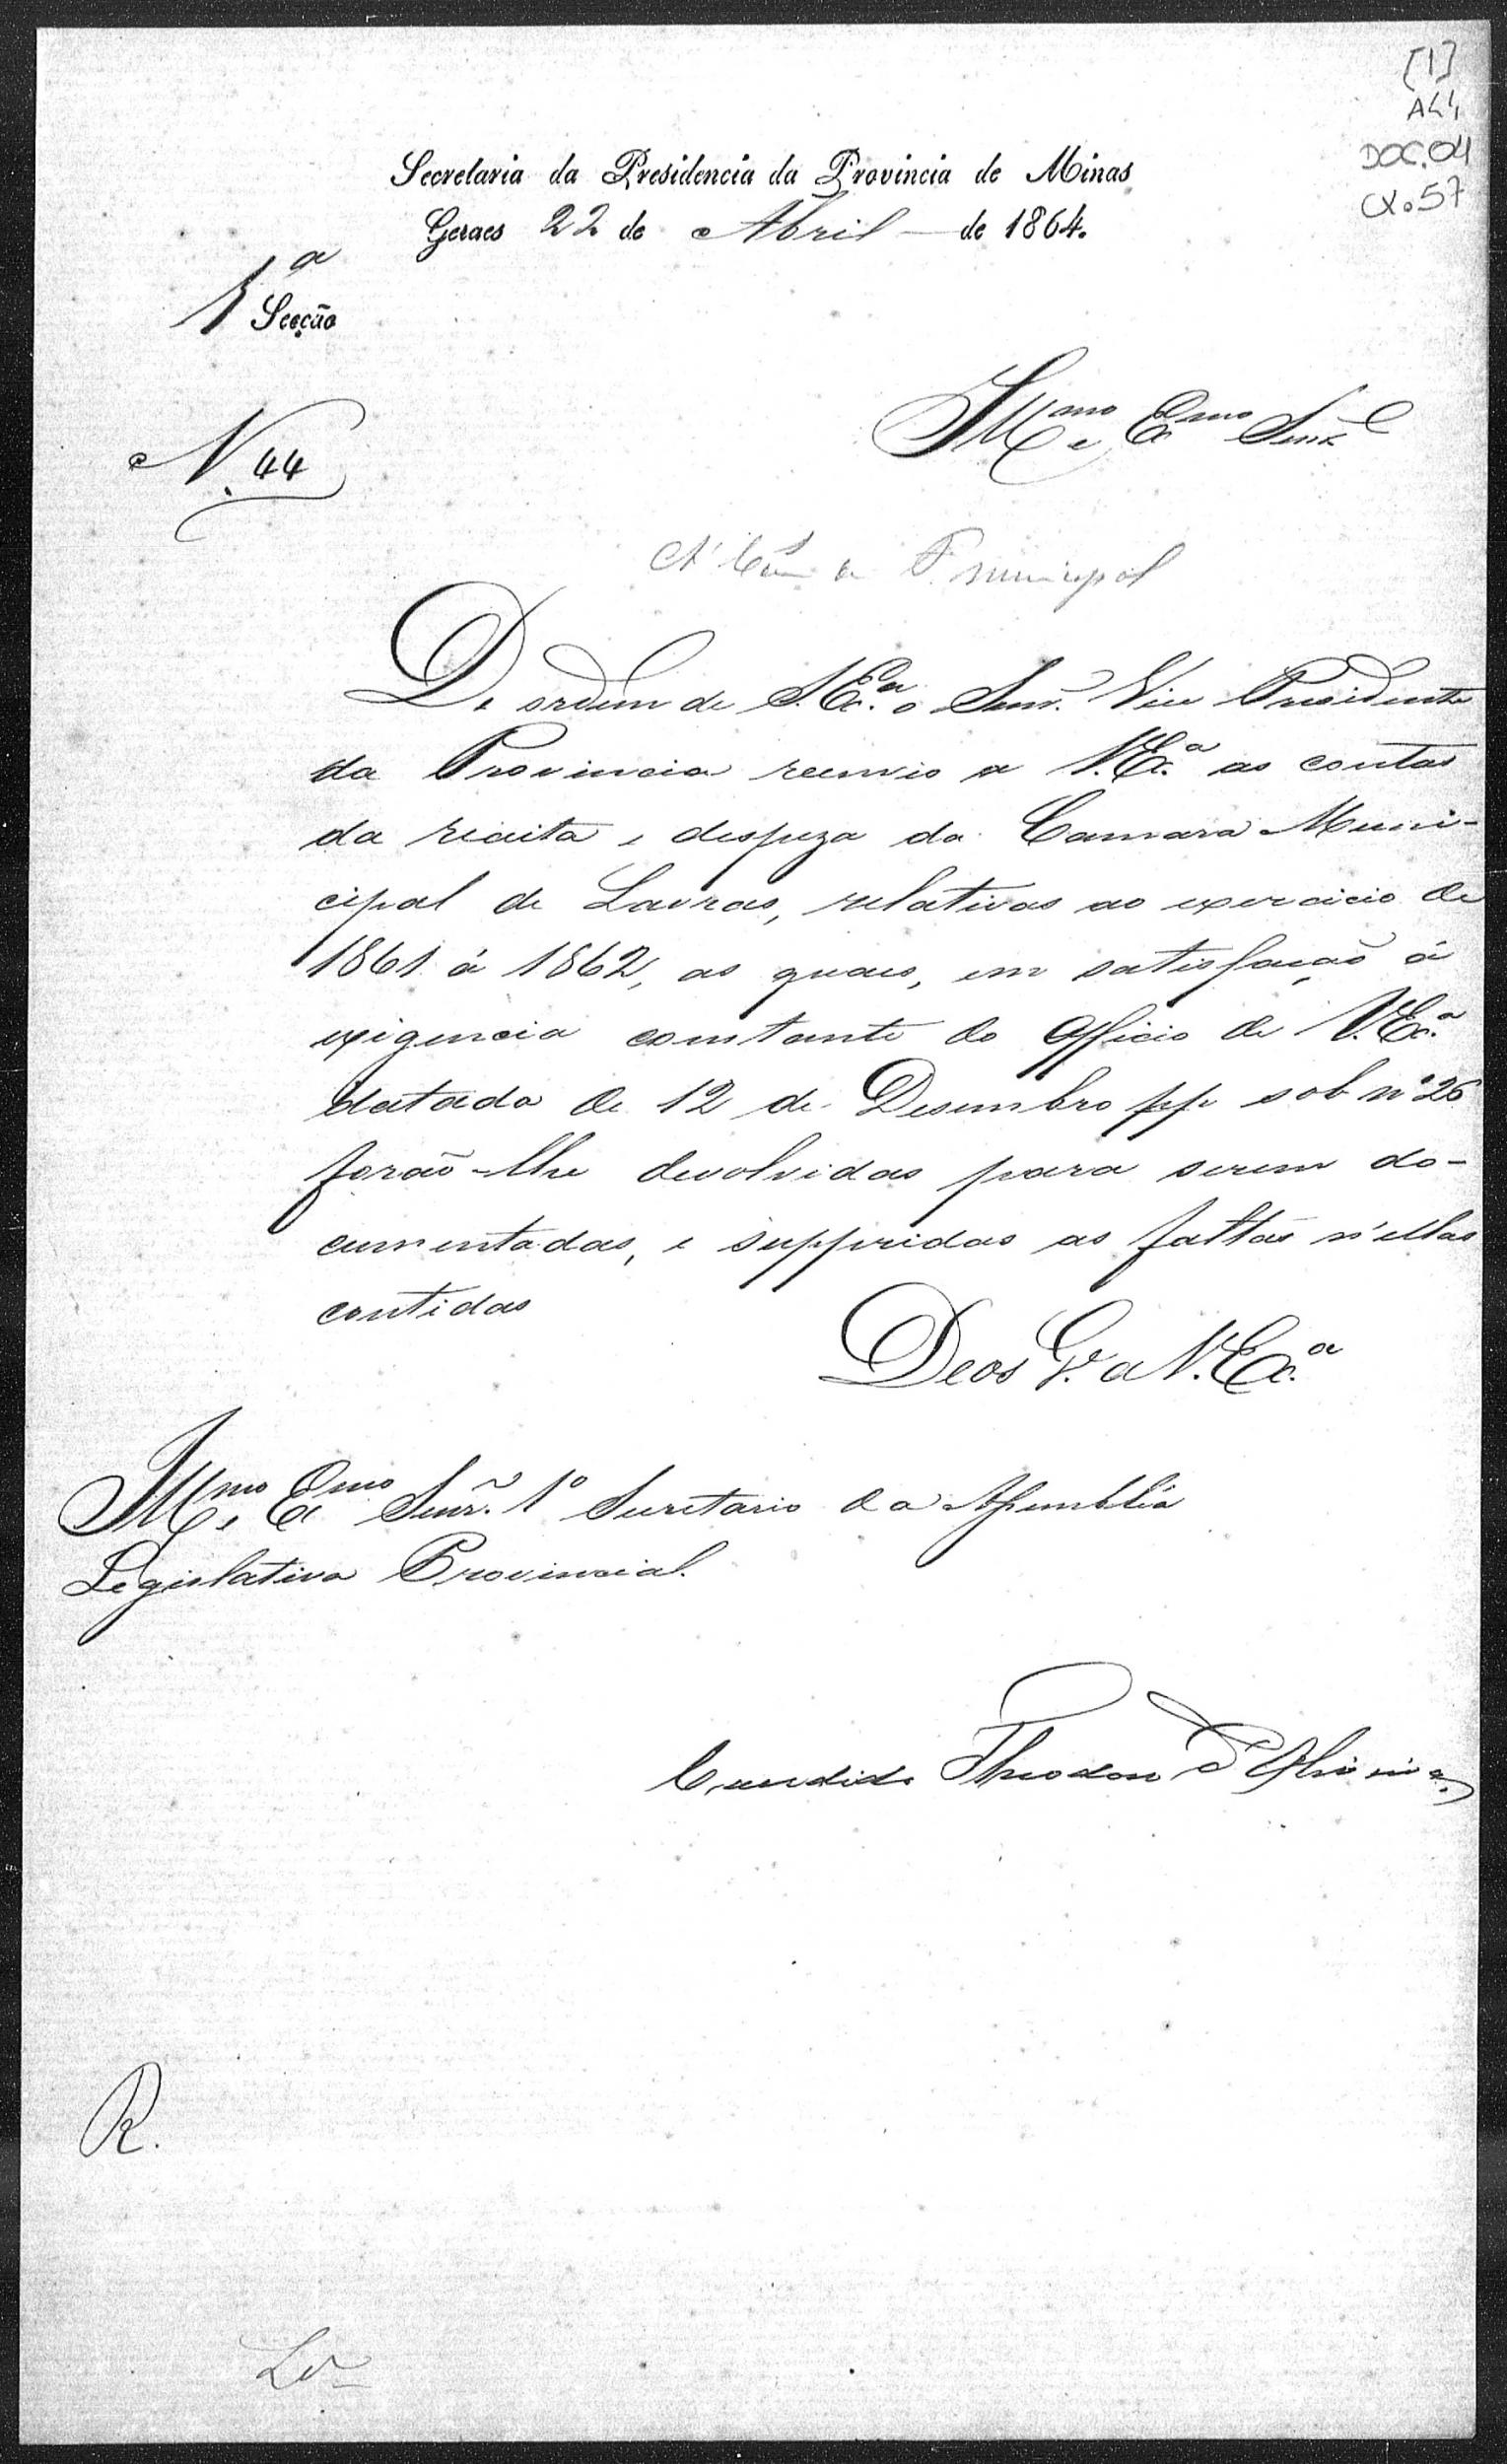 [1]
A44
DOC. 04
CX. 57
Secretaria da Presidencia da Provincia de Minas
Geraes 22 de Abril de 1864.
1ª Secção
Illmo e Exmo Senr
N. 44
A' Com de F. municipal
De ordem de S. Exª o Senr. Vice Presidente
da Provincia reenvio a V. Exª as contas
da receita e despeza da Camara Muni-
cipal de Lavras, relativas ao exercicio de
1861 á 1862, as quaes, em satisfação á
exigencia constante do officio de V. Exª
datado de 12 de Desembro pp sob nº 26
forão-lhe devolvidas para serem do-
cumentadas, e suppridas as faltas n'ellas
contidas
Deos G.e a V. Exª
Illmo e Exmo Senr. 1º Secretario da Assembléa
Legislativa Provincial.
Candido Theodoro d'Oliveira
R.